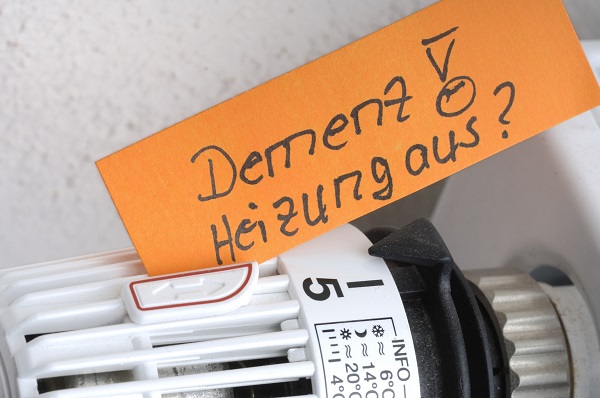 Demenz !
Heizung aus?
5
INFO
❄ ≈ 6°C
☾ ≈ 14°C
☀ ≈ 20°C
4°C